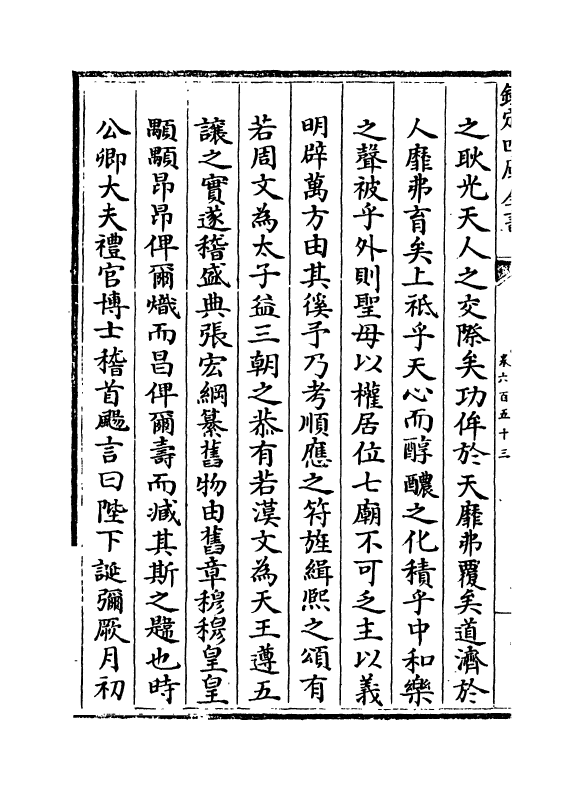 欽定四庫全書
卷六百五十三
之耿光天人之交際矣功侔於天靡弗覆矣道濟於
人靡弗育矣上祗乎天心而醇醲之化積乎中和樂
之聲被乎外則聖母以權居位七廟不可乏主以義
明辟萬方由其徯予乃考順應之符旌緝熙之頌有
若周文為太子益三朝之恭有若漢文為天王遵五
讓之實遂稽盛典張宏綱纂舊物由舊章穆穆皇皇
顒顒昂昂俾爾熾而昌俾爾壽而臧其斯之謂也時
公卿大夫禮官博士稽首颺言曰陛下誕彌厥月初